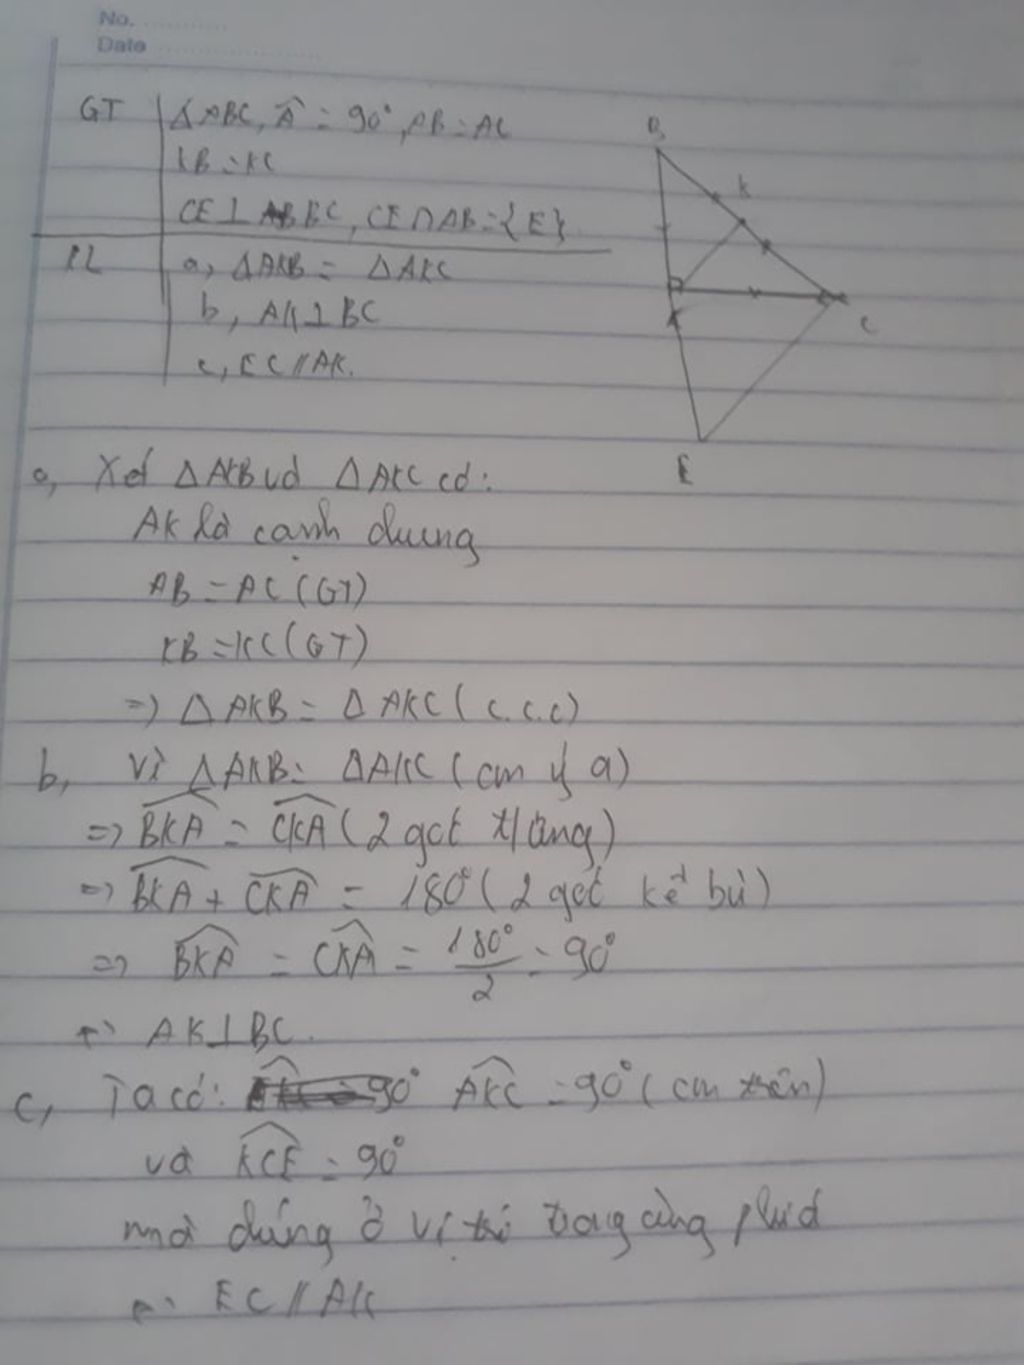 No.
Date
GT ΔABC, Â = 90°, AB = AC
KB = KC
CE ⊥ BC, CE ∩ AB = {E}
KL a, ΔAKB = ΔAKC
b, AK ⊥ BC
c, EC // AK.
B
K
C
E
a, Xét ΔAKB và ΔAKC có:
AK là cạnh chung
AB = AC (GT)
KB = KC (GT)
=> ΔAKB = ΔAKC (c.c.c)
b, Vì ΔAKB = ΔAKC (cm ý a)
=> BKA = CKA (2 góc t/ứng)
=> BKA + CKA = 180° (2 góc kề bù)
=> BKA = CKA = 180°/2 = 90°
=> AK ⊥ BC.
c, Ta có: AKC = 90° (cm trên)
và KCE = 90°
mà chúng ở vị trí trong cùng phía
=> EC // AK